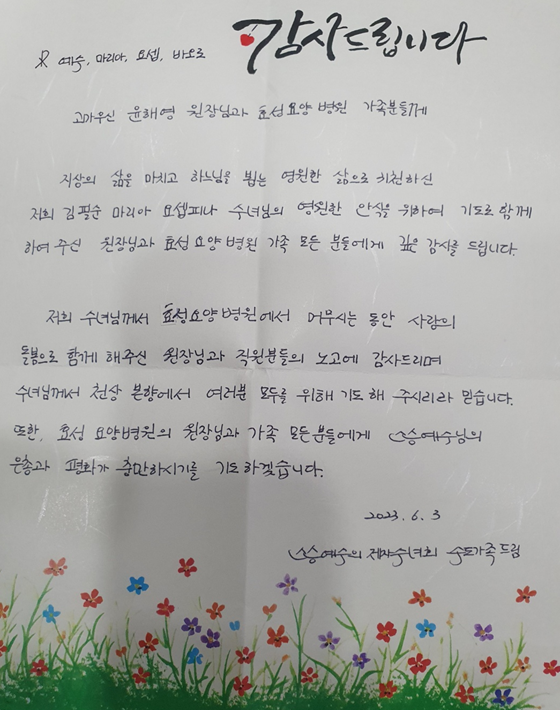 감사드립니다
예수, 마리아, 요셉, 바오로
고마우신 윤해영 원장님과 효성요양병원 가족분들께
지상의 삶을 마치고 하느님을 뵙는 영원한 삶으로 귀천하신
저희 김필순 마리아 요셉피나 수녀님의 영원한 안식을 위하여 기도로 함께
하여 주신 원장님과 효성요양병원 가족 모든 분들에게 깊은 감사를 드립니다.
저희 수녀님께서 효성요양병원에서 머무시는 동안 사람의
돌봄으로 함께 해주신 원장님과 직원분들의 노고에 감사드리며
수녀님께서 천상 본향에서 여러분 모두를 위해 기도해 주시리라 믿습니다.
또한, 효성 요양병원의 원장님과 가족 모든분들에게 스승예수님의
은총과 평화가 충만하시기를 기도하겠습니다.
2023. 6. 3
스승예수의 제자수녀회 가족드림